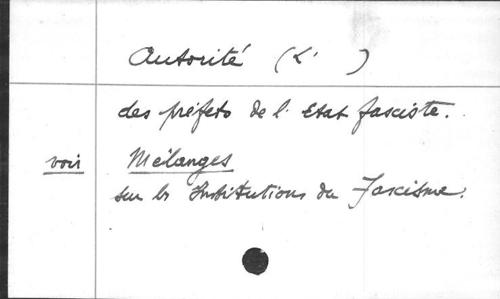 Autorité (L' )
des préfets de l'Etat fasciste.
voir Mélanges
sur les Institutions du Fascisme.